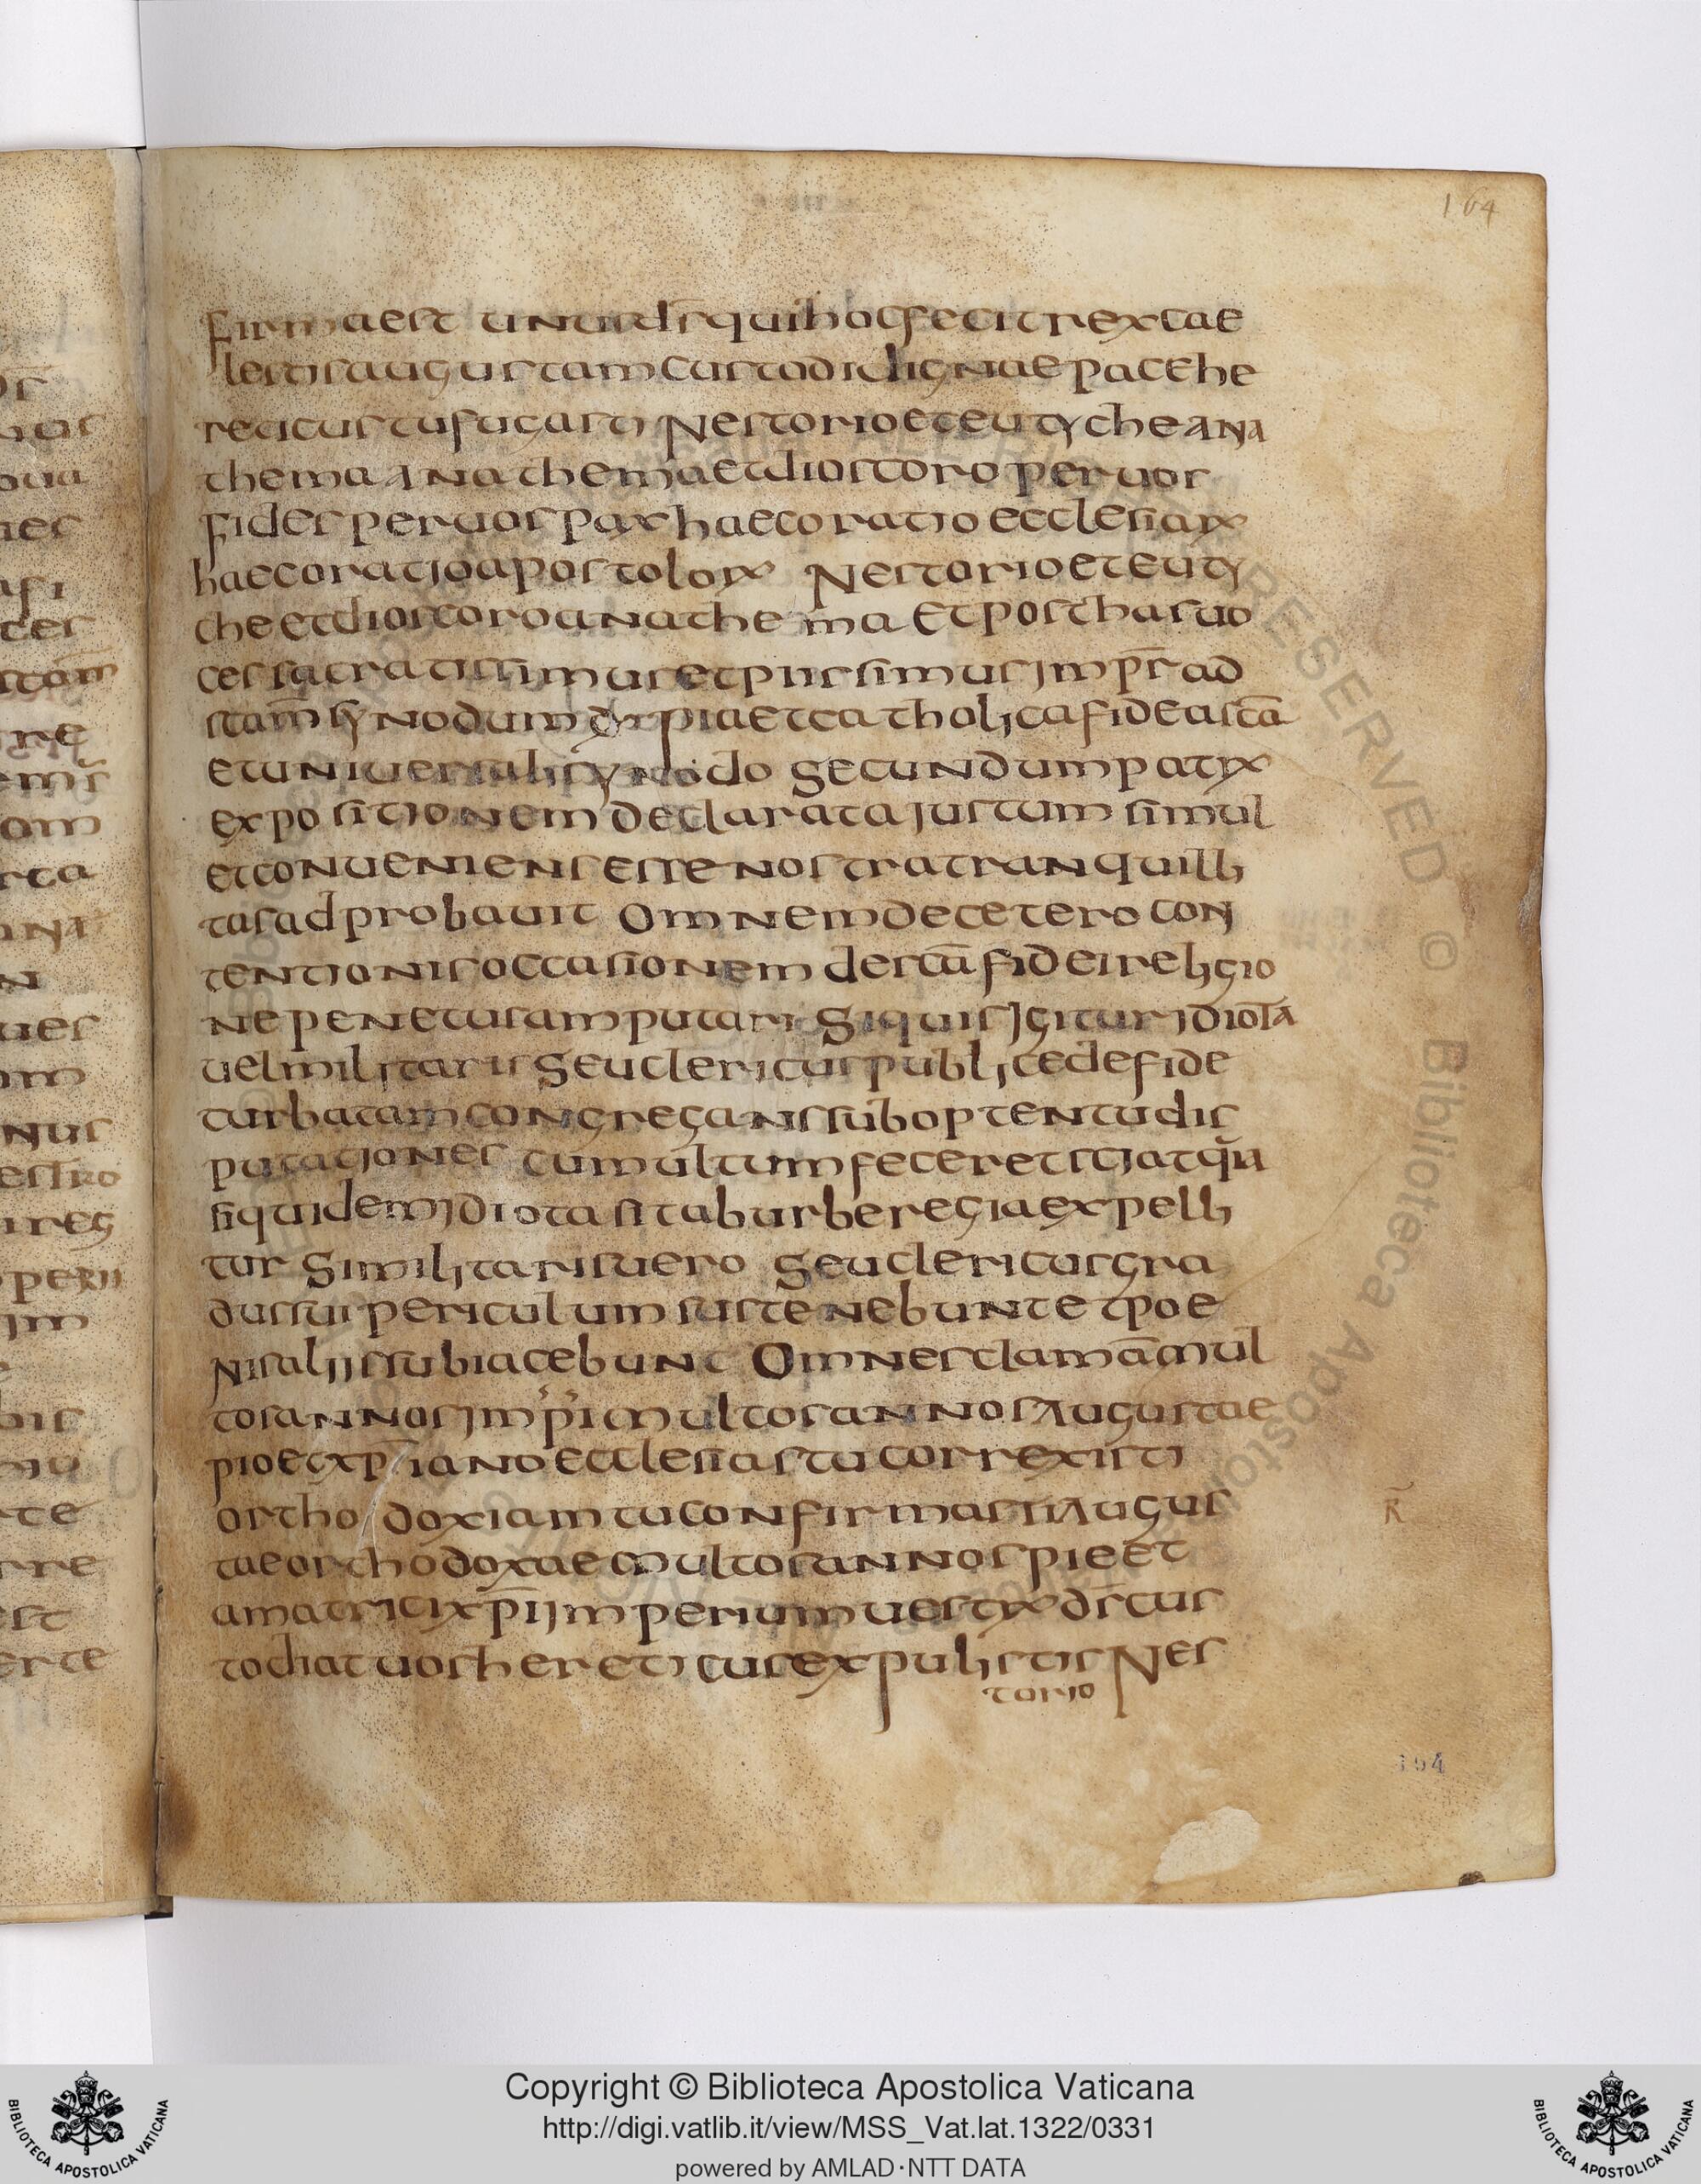 164
firmaest unus d̄s qui hoc fecit rex cae
lestis augustam custodi dignae pace he
reticus tu fugasti Nestorio et eutychae ana
thema anathema et dioscoro per vos
fides per vos pax haec oratio ecclesiaꝝ
haec oratio apostoloꝝ Nestorio et euty
che et dioscoro anathema Et post has vo
ces sacratissimus et piissimus imp̄r ad
s̄cam synodum dx̄ pia et catholica fide a s̄ca
et universali synodo Secundum patꝝ
expositionem declarata justum simul
et conveniens esse nostra tranquilli
tas adprobavit Omnem de cetero con
tentionis occasionem de s̄ca fidei religio
ne penetus amputari Si quis igitur idiota
vel militaris Seu clericus publice de fide
turbatam congregans sub optentu dis
putationes cum ultum fecere et sciat q̄n
si quidem idiota sit ab urbe regia expelli
tur Si militaris vero Seu clericus gra
dus sui periculum sustenebunt et poe
nis aliis subiacebunt Omnes clamā mul
tos annos imp̄i multos annos Augustae
pio et xp̄iano ecclesias tu correxisti
orthodoxiam tu confirmasti Augus
tae orthodoxae multos annos pie et
amatricix xp̄i imperium vestꝝ d̄s cus
todiat vos hereticus expulistis Nes
torio
R̄
164
Copyright © Biblioteca Apostolica Vaticana
http://digi.vatlib.it/view/MSS_Vat.lat.1322/0331
powered by AMLAD·NTT DATA
BIBLIOTECA APOSTOLICA VATICANA
BIBLIOTECA APOSTOLICA VATICANA